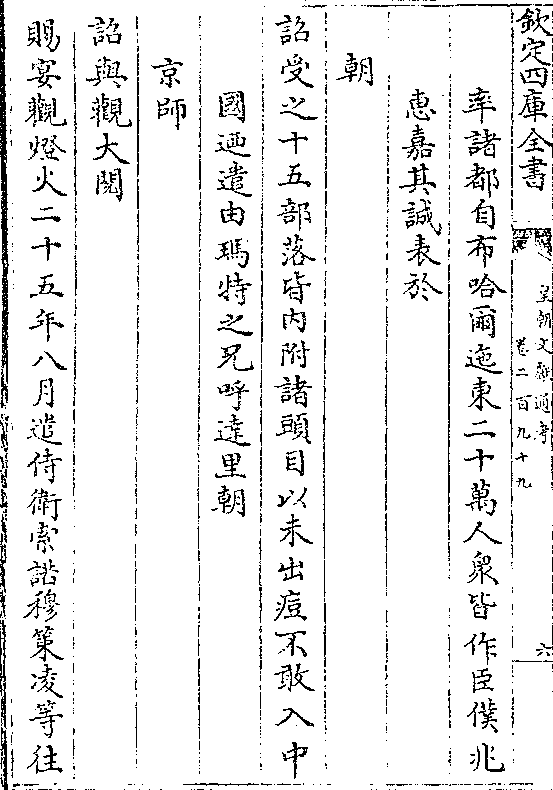 欽定四庫全書
皇朝文獻通考
卷二百九十九
六
率諸都自布哈爾迤東二十萬人衆皆作臣僕兆
惠嘉其誠表於
朝
詔受之十五部落皆内附諸頭目以未出痘不敢入中
國迺遣由瑪特之兄呼達里朝
京師
詔與觀大閱
賜宴觀燈火二十五年八月遣侍衛索諾穆策凌等往